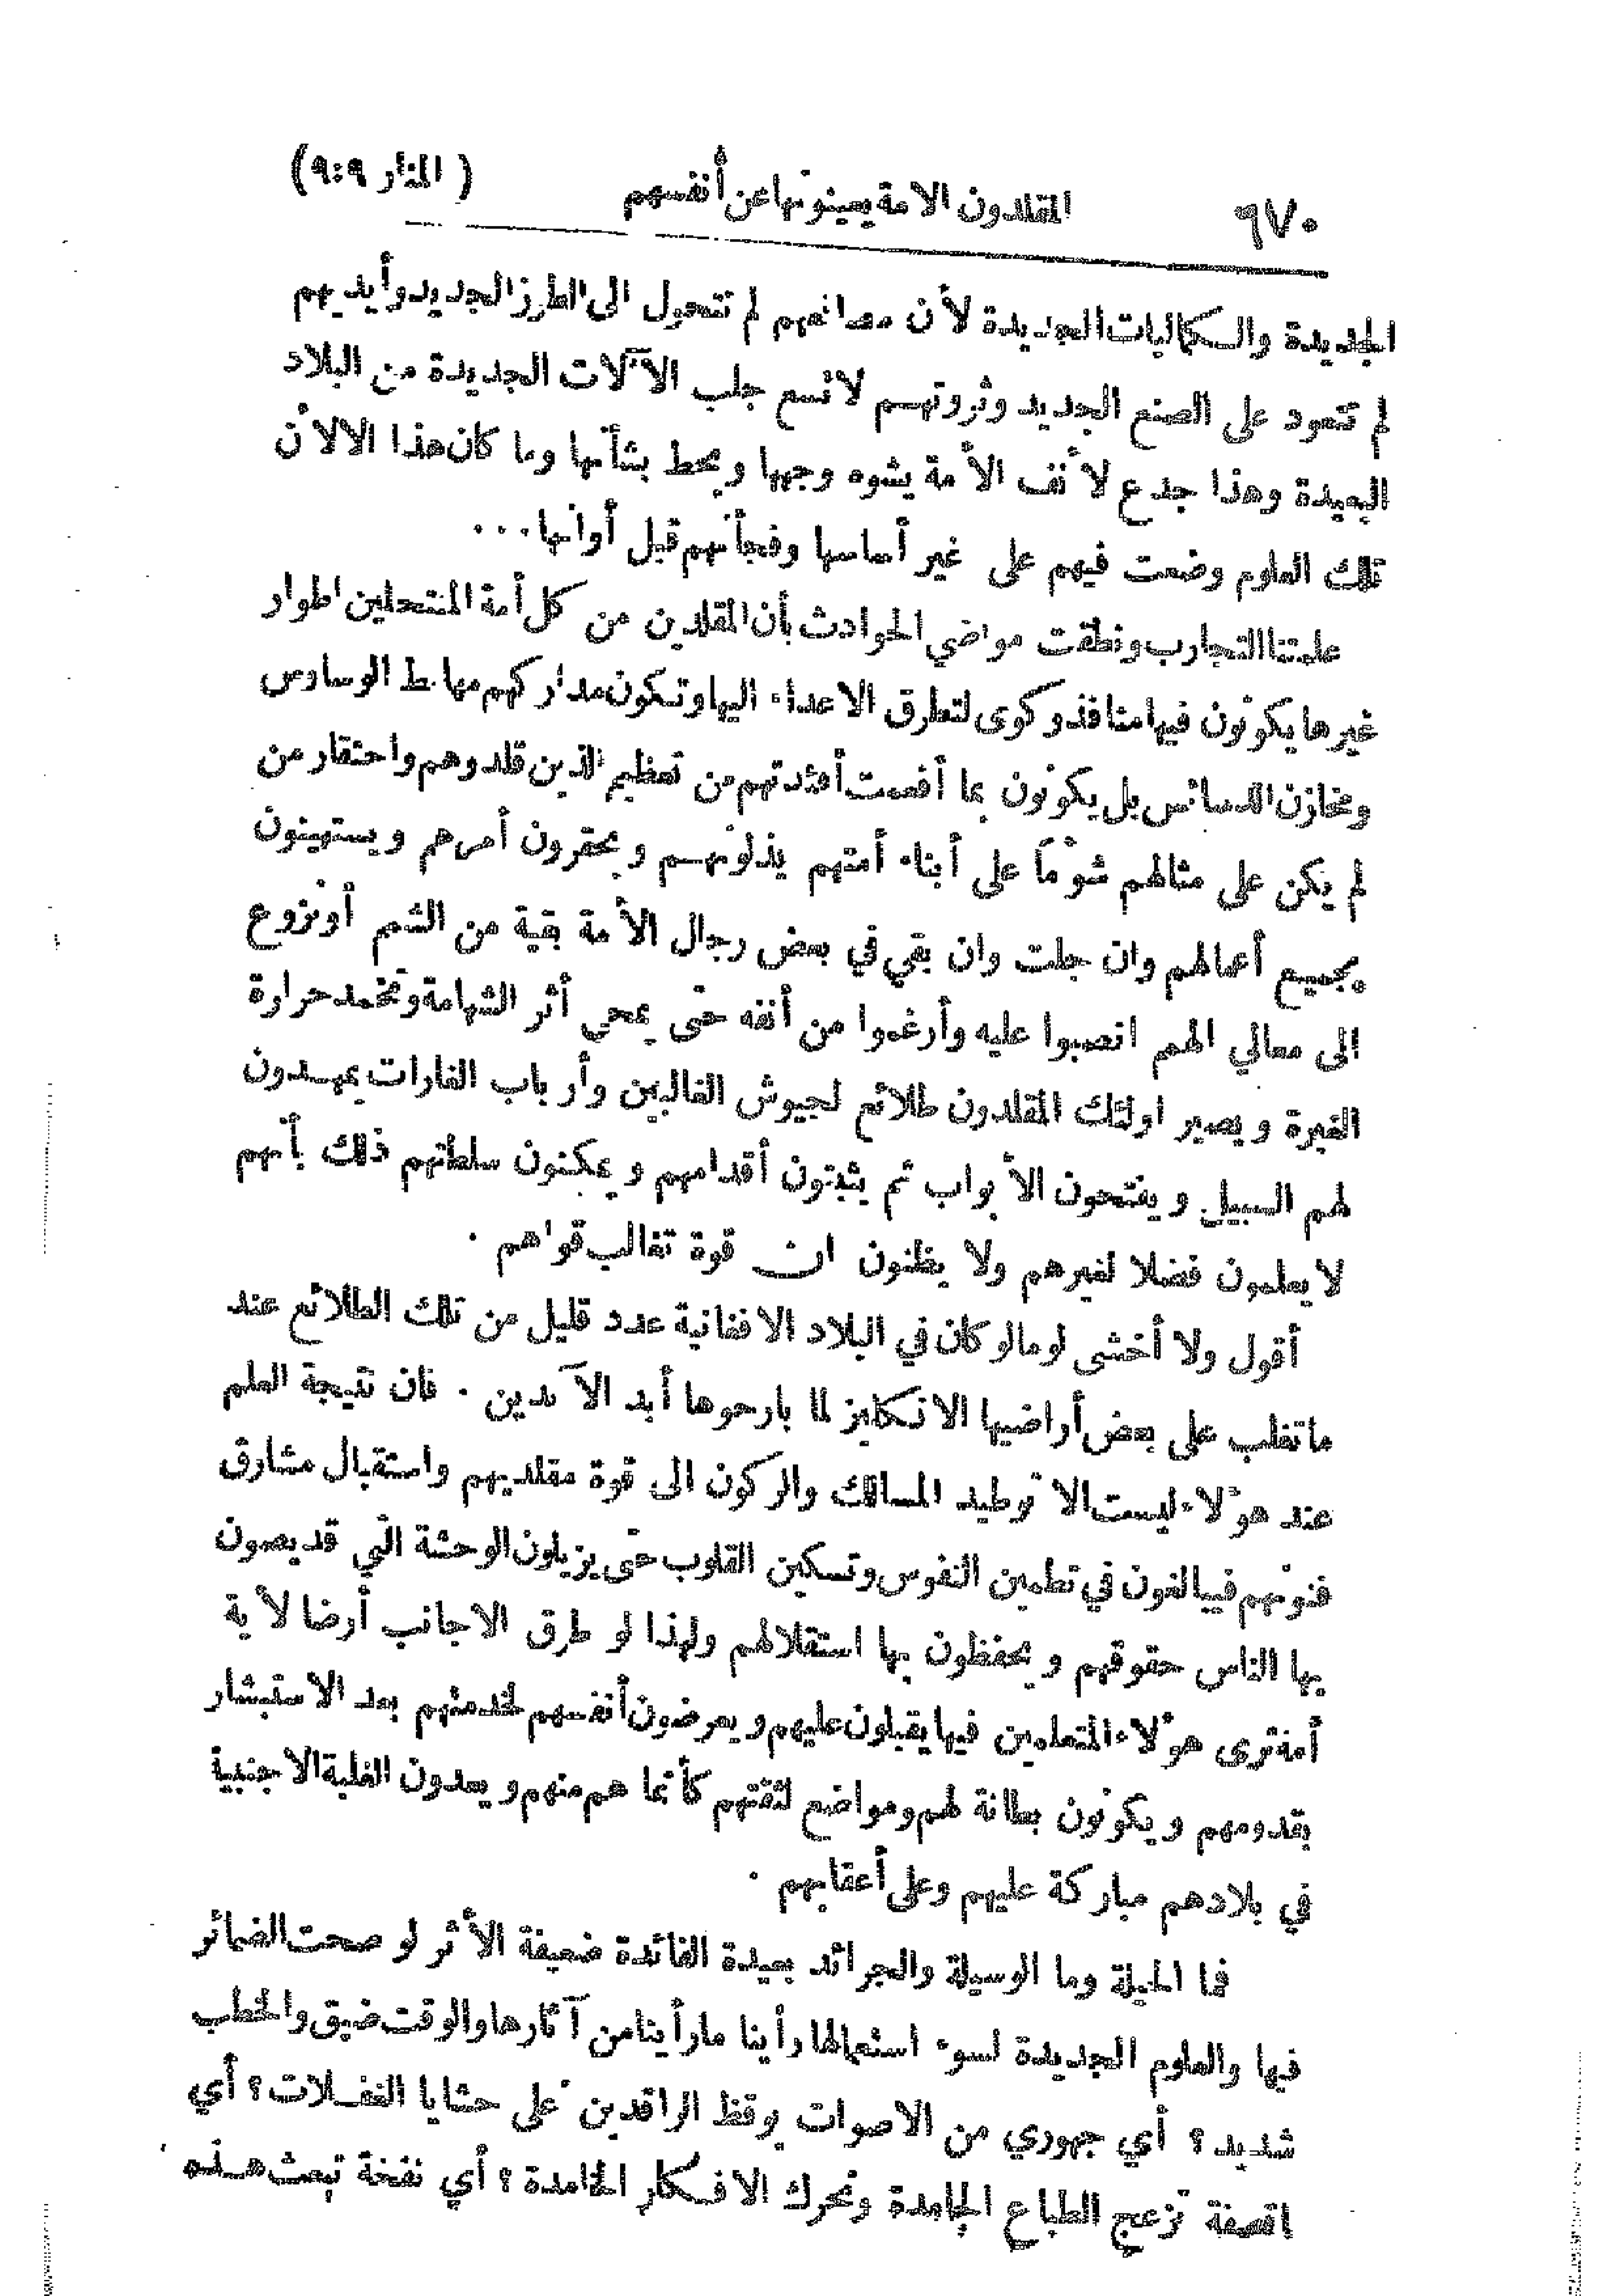 ٦٧٠ المقلدون الامة يهينونها عن أنفسهم (المنار ٩:٩)
الجديدة والكماليات الجديدة لأن مصانعهم لم تتحول الى الطرز الجديد وأيديهم
لم تتعود على الصنع الجديد وثروتهم لا تسع جلب الآلات الجديدة من البلاد
البعيدة وهذا جدع لأنف الأمة يشوه وجهها ويحط بشأنها وما كان هذا الا لأن
تلك العلوم وضعت فيهم على غير أساسها وفجأتهم قبل أوانها...
علمتنا التجارب ونطقت مواضي الحوادث بأن المقلدين من كل أمة المنتحلين اطوار
غيرها يكونون فيها منافذ وكوى لتطرق الاعداء اليها وتكون مداركهم مهابط الوساوس
ومخازن الدسائس بل يكونون بما أفعمت أفئدتهم من تعظيم الذين قلدوهم واحتقار من
لم يكن على مثالهم شؤماً على أبناء أمتهم يذلونهم ويحقرون أمرهم ويستهينون
بجميع أعمالهم وان جلت وان بقي في بعض رجال الأمة بقية من الشمم أو نزوع
الى معالي الهمم انصبوا عليه وأرغموا من أنفه حتى يمحي أثر الشهامة وتخمد حرارة
الغيرة ويصير اولئك المقلدون طلائع لجيوش الغالبين وأرباب الغارات يمهدون
لهم السبيل ويفتحون الأبواب ثم يثبتون أقدامهم ويمكنون سلطتهم ذلك بأنهم
لا يعلمون فضلا لغيرهم ولا يظنون ان قوة تغالب قواهم .
أقول ولا أخشى لوما لو كان في البلاد الافغانية عدد قليل من تلك الطلائع عند
ما تغلب على بعض أراضيها الانكليز لما بارحوها أبد الآبدين . فان نتيجة العلم
عند هؤلاء ليست الا توطيد المسالك والركون الى قوة مقلديهم واستقبال مشارق
فنونهم فيبالغون في تطمين النفوس وتسكين القلوب حتى يزيلون الوحشة التي قد يصون
بها الناس حقوقهم ويحفظون بها استقلالهم ولهذا لو طرق الاجانب أرضا لأية
أمة ترى هؤلاء المتعلمين فيها يقبلون عليهم ويعرضون أنفسهم لخدمتهم بعد الاستبشار
بقدومهم ويكونون بطانة لهم ومواضع لثقتهم كأنما هم منهم ويعدون الغلبة الاجنبية
في بلادهم مباركة عليهم وعلى أعقابهم .
فما الحيلة وما الوسيلة والجرائد بعيدة الفائدة ضعيفة الأثر لو صحت الضمائر
فيها والعلوم الجديدة لسوء استعمالها رأينا ما رأينا من آثارها والوقت ضيق والخطب
شديد ؟ أي جهوري من الاصوات يوقظ الراقدين على حشايا الغفلات ؟ أي
اقصفة تزعج الطباع الجامدة وتحرك الافكار الخامدة ؟ أي نفخة تبعث هذه